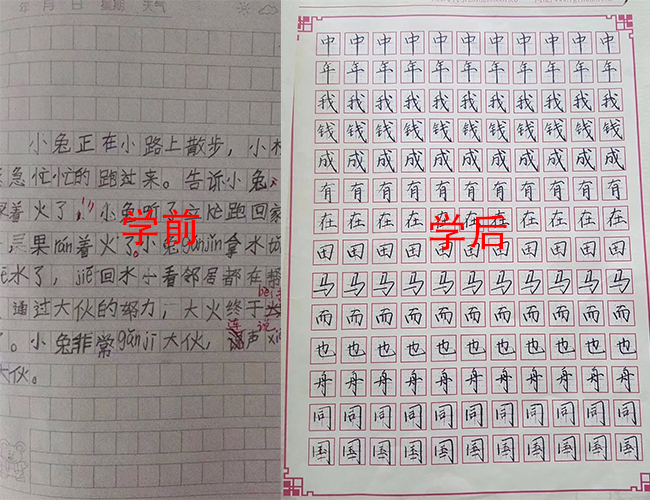 年 月 日 星期 天气
小兔正在小路上散步，小
急忙忙的跑过来。告诉小兔，
着火了，小兔听了立忙跑回家
果rán着火了。小兔gǎnjǐn拿水
水了，jiē回水 看邻居都在帮
通过大伙的努力，大火终于
了。小兔非常gǎnjī大伙，连声
说
大伙。
学前
学后
中 中 中 中 中 中 中 中 中 中 中
年 年 年 年 年 年 年 年 年 年 年
我 我 我 我 我 我 我 我 我 我 我
钱 钱 钱 钱 钱 钱 钱 钱 钱 钱 钱
成 成 成 成 成 成 成 成 成 成 成
有 有 有 有 有 有 有 有 有 有 有
在 在 在 在 在 在 在 在 在 在 在
田 田 田 田 田 田 田 田 田 田 田
马 马 马 马 马 马 马 马 马 马 马
而 而 而 而 而 而 而 而 而 而 而
也 也 也 也 也 也 也 也 也 也 也
舟 舟 舟 舟 舟 舟 舟 舟 舟 舟 舟
同 同 同 同 同 同 同 同 同 同 同
国 国 国 国 国 国 国 国 国 国 国